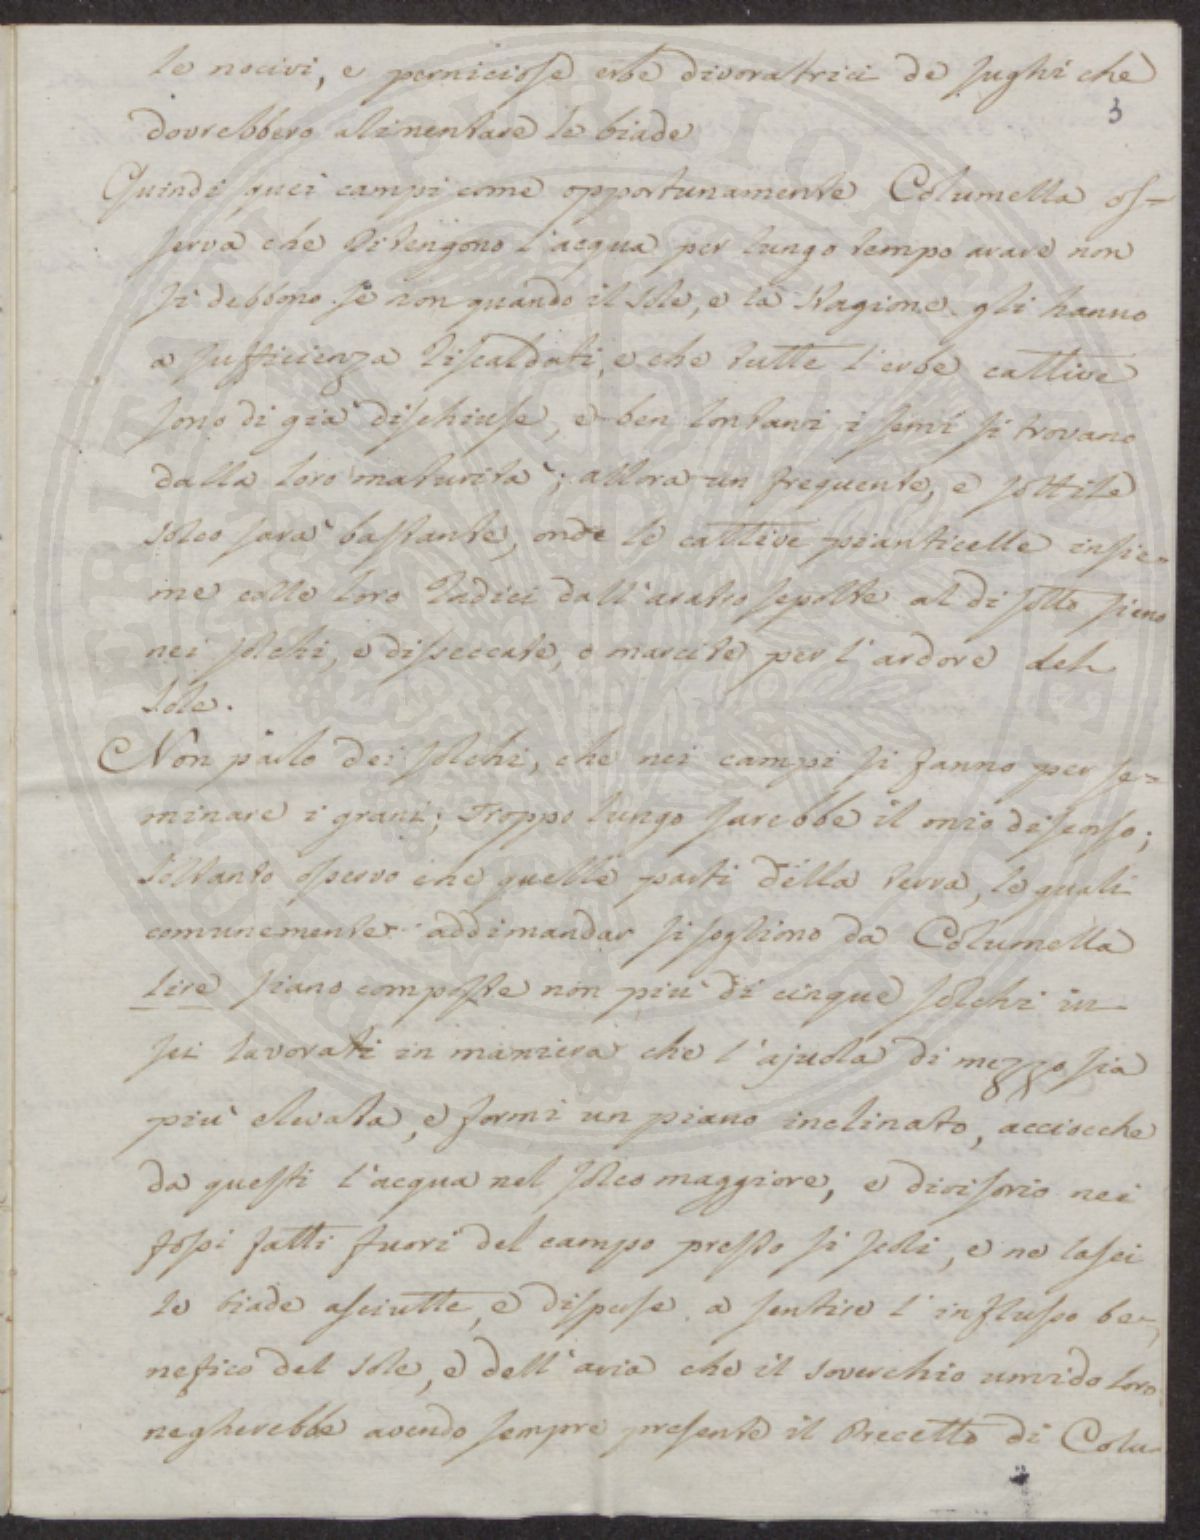 le nocivi, e perniciose erbe divoratrici de sughi che
3
dovrebbero alimentare le biade
Quindi quei campi come opportunamente Columella os=
serva che ritengono l'acqua per lungo tempo arare non
si debbono se non quando il sole, e la stagione gli hanno
a sufficienza riscaldati, e che tutte l'erbe cattive
sono di già dischiuse, e ben lontani i semi si trovano
dalla loro maturità; allora un frequente, e sottile
solco sarà bastante, onde le cattive pianticelle insie=
me colle loro radici dall'aratro sepolte al di sotto sieno
nei solchi, e disseccate, o marcite per l'ardore del
sole.
Non parlo dei solchi, che nei campi si fanno per se=
minare i grani; troppo lungo sarebbe il mio discorso;
soltanto osservo che quelle parti della terra, le quali
comunemente addimandar si sogliono da Columella
lire siano composte non più di cinque solchi in
sei lavorati in maniera che l'ajuola di mezzo sia
più elevata, e formi un piano inclinato, acciocche
da questi l'acqua nel solco maggiore, e divisorio nei
fossi fatti fuori del campo presto si scoli, e ne lasci
le biade asciutte, e disposse a sentire l'influsso be=
nefico del sole, e dell'aria che il soverchio umido loro
negherebbe avendo sempre presente il Precetto di Colu=